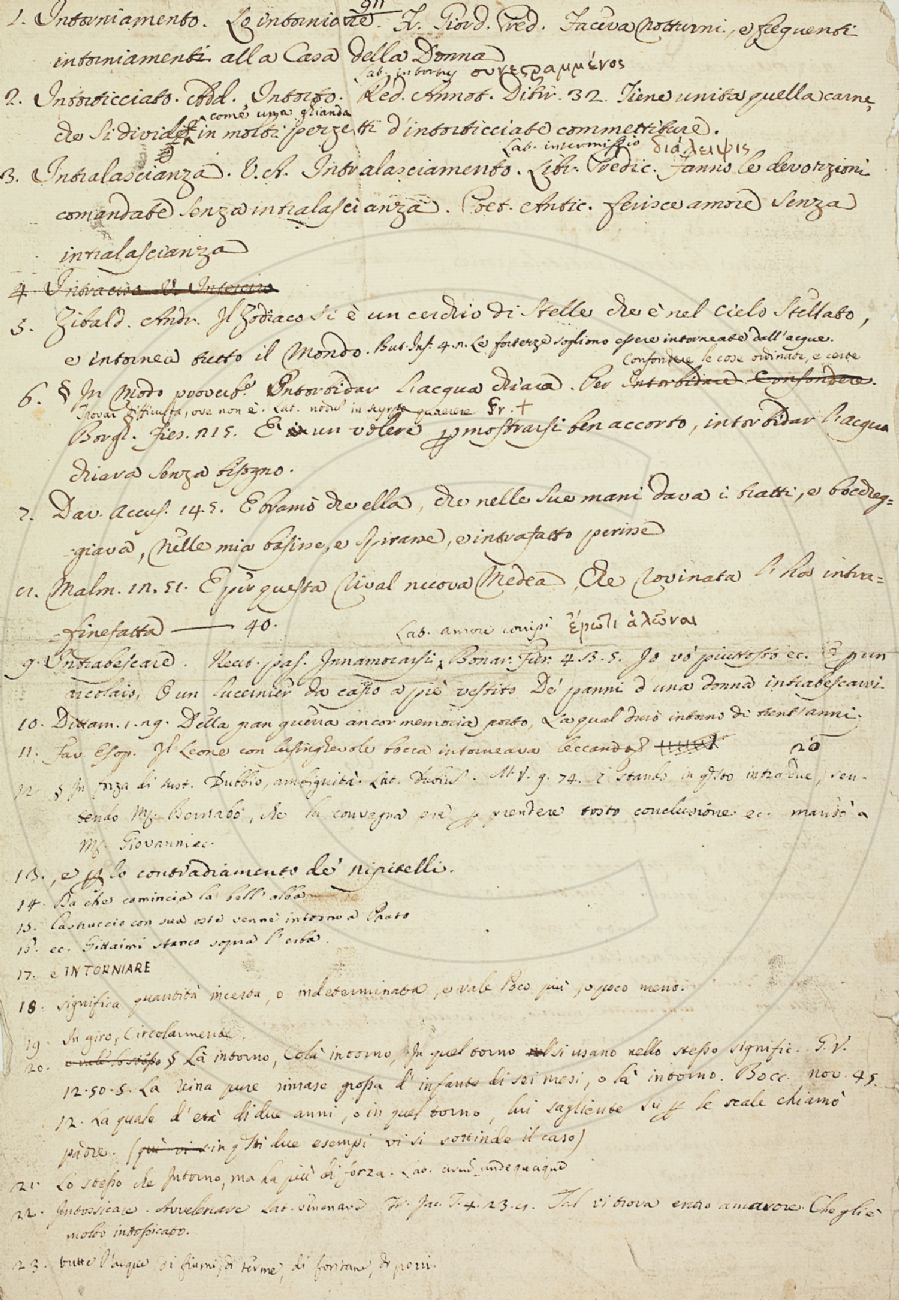 911
1. Intorniamento. Lo intorniare. Fr. Giord. Pred. Faceva notturni, e seguenti
intorniamenti alla Casa della Donna
Lat. intortus συνεστραμμένος
2. Intorticciato. Add. Intorto. Red. Annot. Ditir. 32. Tiene unita quella carne,
come una ghianda
che si divide in molti pezzetti d'intorticciate commettiture.
Lat. intermissio διάλειψις
3. Intralascianza. V.A. Intralasciamento. Libr. Predic. Fanno le devozioni
comandate senza intralascianza. Poet. Antic. ferisce amore senza
intralascianza
4
5. Zibald. Andr. Il Zodiaco si è un cerchio di Stelle che è nel Cielo Stellato,
e intornea tutto il Mondo. But. Inf. 4. n. Le fortezze sogliono essere intorneate dall'acque.
Confondere le cose ordinate, e certe
6. § In modo proverb. Intorbidar l'acqua chiara. Per Intorbidare Confondere.
Trovar difficultà, ove non è. Lat. nodum in scyrpo quaerere Fr. +
Borgh. Fies. 215. E un volere p mostrarsi ben accorto, intorbidar l'acqua
chiara senza bisogno.
7. Dav. Accus. 145. E bramò che ella, che nelle sue mani dava i tratti, e boccheg=
giava, nelle mia basisse, e spirasse, e intrafatto perisse
Malm. 12. 51. E per questa rival nuova Medea, che rovinata l'ha intra=
finefatta —— 40.
Lat. amore corripi ἔρωτι ἁλῶναι
9. Intrabescare. Neut. pass. Innamorarsi. Buonar. Fier. 4. 3. 5. Io vo' piuttosto ec. O p un
arcolaio, o un lucciniere da casio a piè vestito De' panni d'una donna intrabescarvi.
10. Dittam. 1. 29. Della gran guerra ancor memoria porto, La qual durò intorno di trent'anni.
11. Fav. Esop. Il Leone con lusinghevole bocca intorneava leccando
12. § In forza di sust. Dubbio, ambiguità. Lat. dubius. M.V. 9. 74. E stando in questo intradue, sen-
tendo M. Bernabò, che la convegna più p prendere tosto conclusione ec. mandò a
M. Giovanni ec.
13. , e p lo contradiamento de' nipitelli.
14. Da che comincia la bell'alba
15. Castruccio con sua oste venne intorno a Prato
16. ec. Gittaimi stanco sopra l'erba.
17. è INTORNIARE
18. significa quantità incerta, o indeterminata, e vale Poco più, o poco meno.
19. In giro, Circolarmente.
20. o vale lo stesso § Là intorno, Colà intorno, In quel torno si usano nello stesso signific. G.V.
12. 50. 5. La Reina pure rimase grossa d'infante di sei mesi, o là intorno. Bocc. nov. 45.
12. La quale d'età di due anni, o in quel torno, lui sagliente su p le scale chiamò
padre. (in questi due esempi vi si sottinde il caso)
21. Lo stesso che Intorno, ma ha più di forza. Lat. circum undequaque
22. Intossicare. Avvelenare Lat. venenare Fr. Jac. T. 4. 23. Tal vi trova entro amarore Che gli è
molto intossicato.
23. tutte l'acque di fiumi, di terme, di fontane, di pozzi.